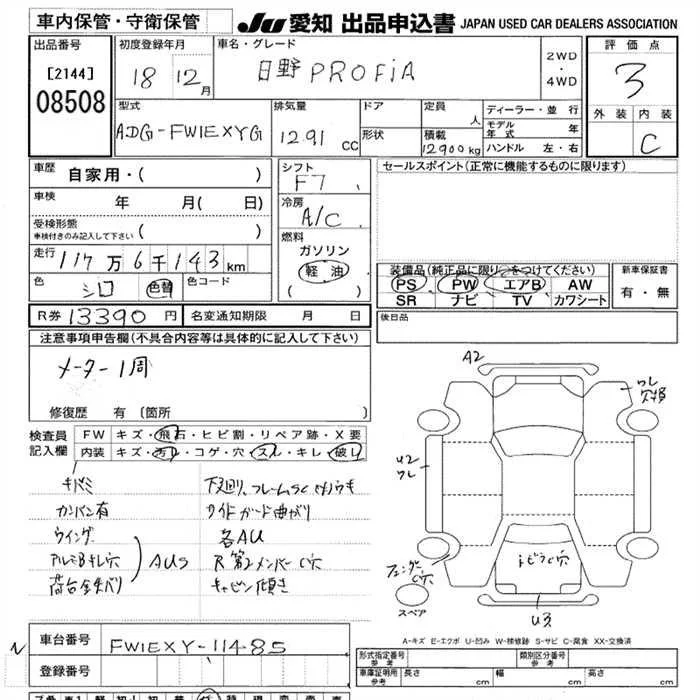 車内保管・守衛保管
JU 愛知 出品申込書 JAPAN USED CAR DEALERS ASSOCIATION
出品番号
[2144]
08508
初度登録年月
18 12月
車名・グレード
日野 PROFiA
2WD
・
4WD
評価点
3
外装 内装
C
型式
ADG-FW1EXYG
排気量
12.91 CC
ドア
形状
定員
人
積載
12900kg
ディーラー・並行
モデル年式 年
ハンドル 左・右
車歴 自家用・( )
車検 年 月( 日)
受検形態
車検付きのみ記入して下さい ( )
走行 117万6千143km
色 シロ 色替 色コード
シフト
F7
冷房
A/C
燃料
ガソリン
軽油
( )
セールスポイント(正常に機能するものに限ります)
装備品(純正品に限り○をつけてください)
PS PW エアB AW
SR ナビ TV カワシート
新車保証書
有・無
R券 13390円 名変通知期限 月 日
後日品
注意事項申告欄(不具合内容等は具体的に記入して下さい)
メーター1周
修復歴 有 〔箇所 〕
検査員記入欄
FW キズ・飛石・ヒビ割・リペア跡・X要
内装 キズ・汚レ・コゲ・穴・スレ・キレ・破レ
キバミ
カンバン有
ウイング
荷台金ナバリ
AUS
下廻り、フレームSC
サイドガード曲がり
各AU
R第2メンバーC穴
キャビン傾き
A2
ワレ
U2
ワレ
フェンダーC穴
スペア
U3
A-キズ E-エクボ U-凹み W-補修跡 S-サビ C-腐食 XX-交換済
N
車台番号 FW1EXY-11485
登録番号
形式指定番号
参考
類別区分番号
参考
車庫証明用
参考
長さ cm 幅 cm 高さ cm